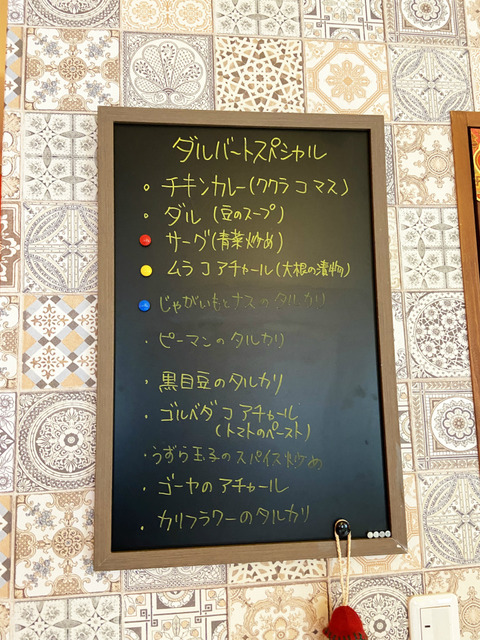 ダルバートスペシャル
。チキンカレー(ククラ コ マス)
。ダル (豆のスープ)
サーグ(青菜炒め)
ムラ コ アチャール(大根の漬物)
じゃがいもとナスのタルカリ
・ピーマンのタルカリ
・黒目豆のタルカリ
・ゴルベダ コ アチャール
(トマトのペースト)
・うずら玉子のスパイス炒め
・ゴーヤのアチャール
・カリフラワーのタルカリ